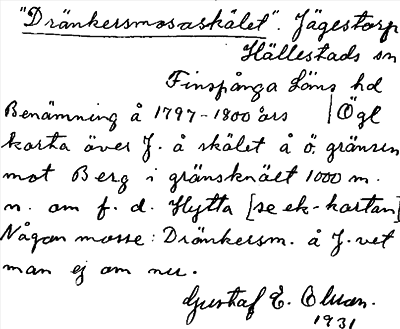 "Dränkersmosaskälet". Jägestorp
Hällestads sn
Finspånga Läns hd
Benämning å 1797-1800 års | Ögl
karta över J. å skälet å ö. gränsen
mot Berg i gränsknält 1000 m.
n. om f. d. Hytta [se ek-kartan]
Någon mosse: Dränkersm. å J. vet
man ej om nu.
Gustaf E. Olson.
1931